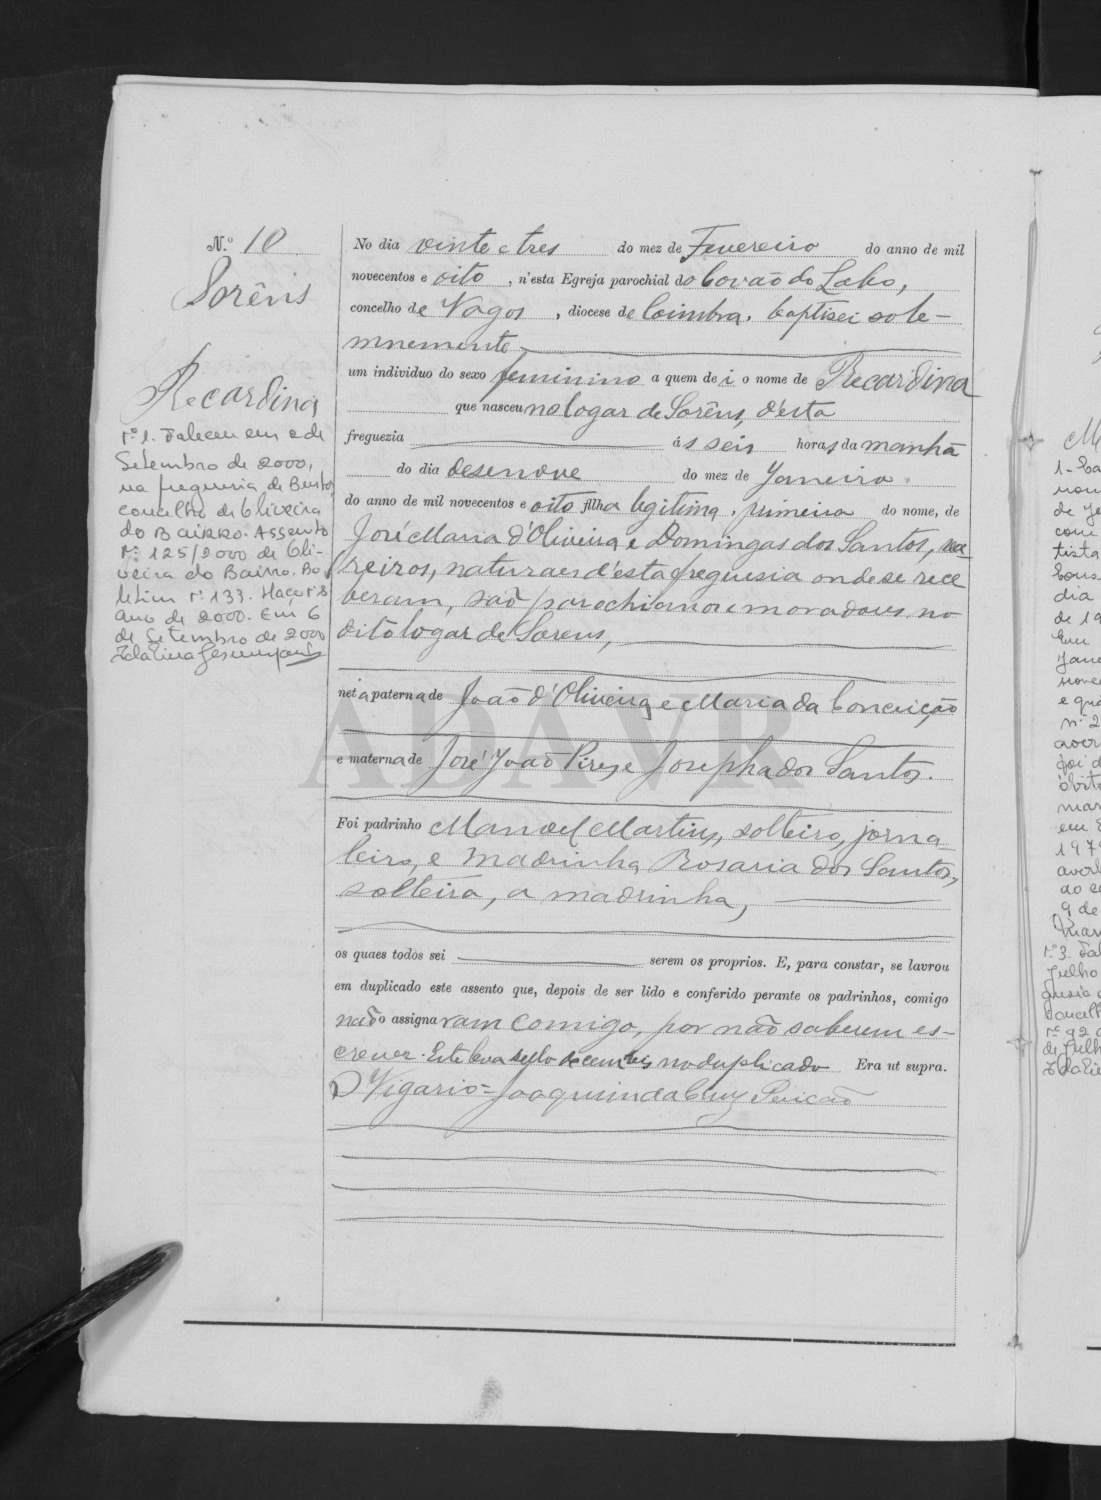 N.º 10
Sorêns
Recardina
Nº 1. Faleceu em 2 de
Setembro de 2000,
na freguesia de Bustos
concelho de Oliveira
do Bairro. Assento
Nº 125/2000 de Oli-
veira do Bairro. Bo-
letim nº 133. Maço nº 8
ano de 2000. Em 6
de Setembro de 2000
No dia vinte e tres do mez de Fevereiro do anno de mil
novecentos e oito, n'esta Egreja parochial do Covão do Lobo,
concelho de Vagos, diocese de Coimbra, baptisei sole-
mnemente
um individuo do sexo feminino a quem dei o nome de Recardina
que nasceu no logar de Sorêns, d'esta
freguezia ás seis horas da manhã
do dia desenove do mez de Janeiro
do anno de mil novecentos e oito filha legitima, primeira do nome, de
José Maria d'Oliveira e Domingas dos Santos,
naturaes d'esta freguesia onde se rece
beram, são parochianos e moradores no
dito logar de Sorens,
neta paterna de João d'Oliveira e Maria da Conceição
e materna de José João Pires e Josepha dos Santos.
Foi padrinho Manoel Martins, solteiro, jorna-
leiro, e madrinha Rosaria dos Santos,
solteira, a madrinha,
os quaes todos sei serem os proprios. E, para constar, se lavrou
em duplicado este assento que, depois de ser lido e conferido perante os padrinhos, comigo
não o assignaram comigo, por não saberem es-
crever. Este leva sello de cem reis no duplicado Era ut supra.
O Vigario = Joaquim da Cruz Pericão
ADAVR